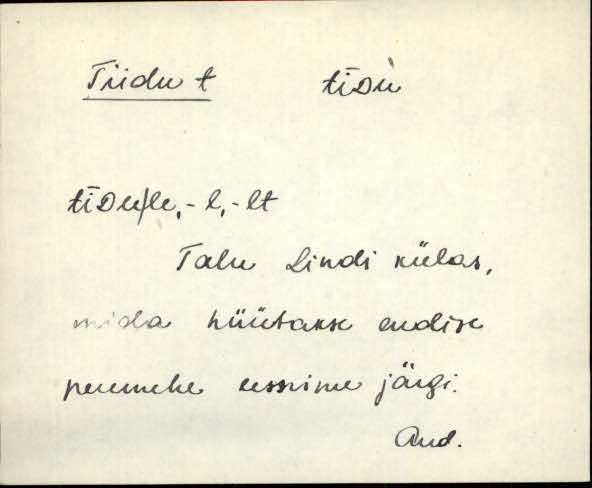 Tiidu t tīᴅu
tīᴅu/le, -l, -lt
Talu Lindi külas,
mida hüütakse endise
peremehe eesnime järgi.
And.